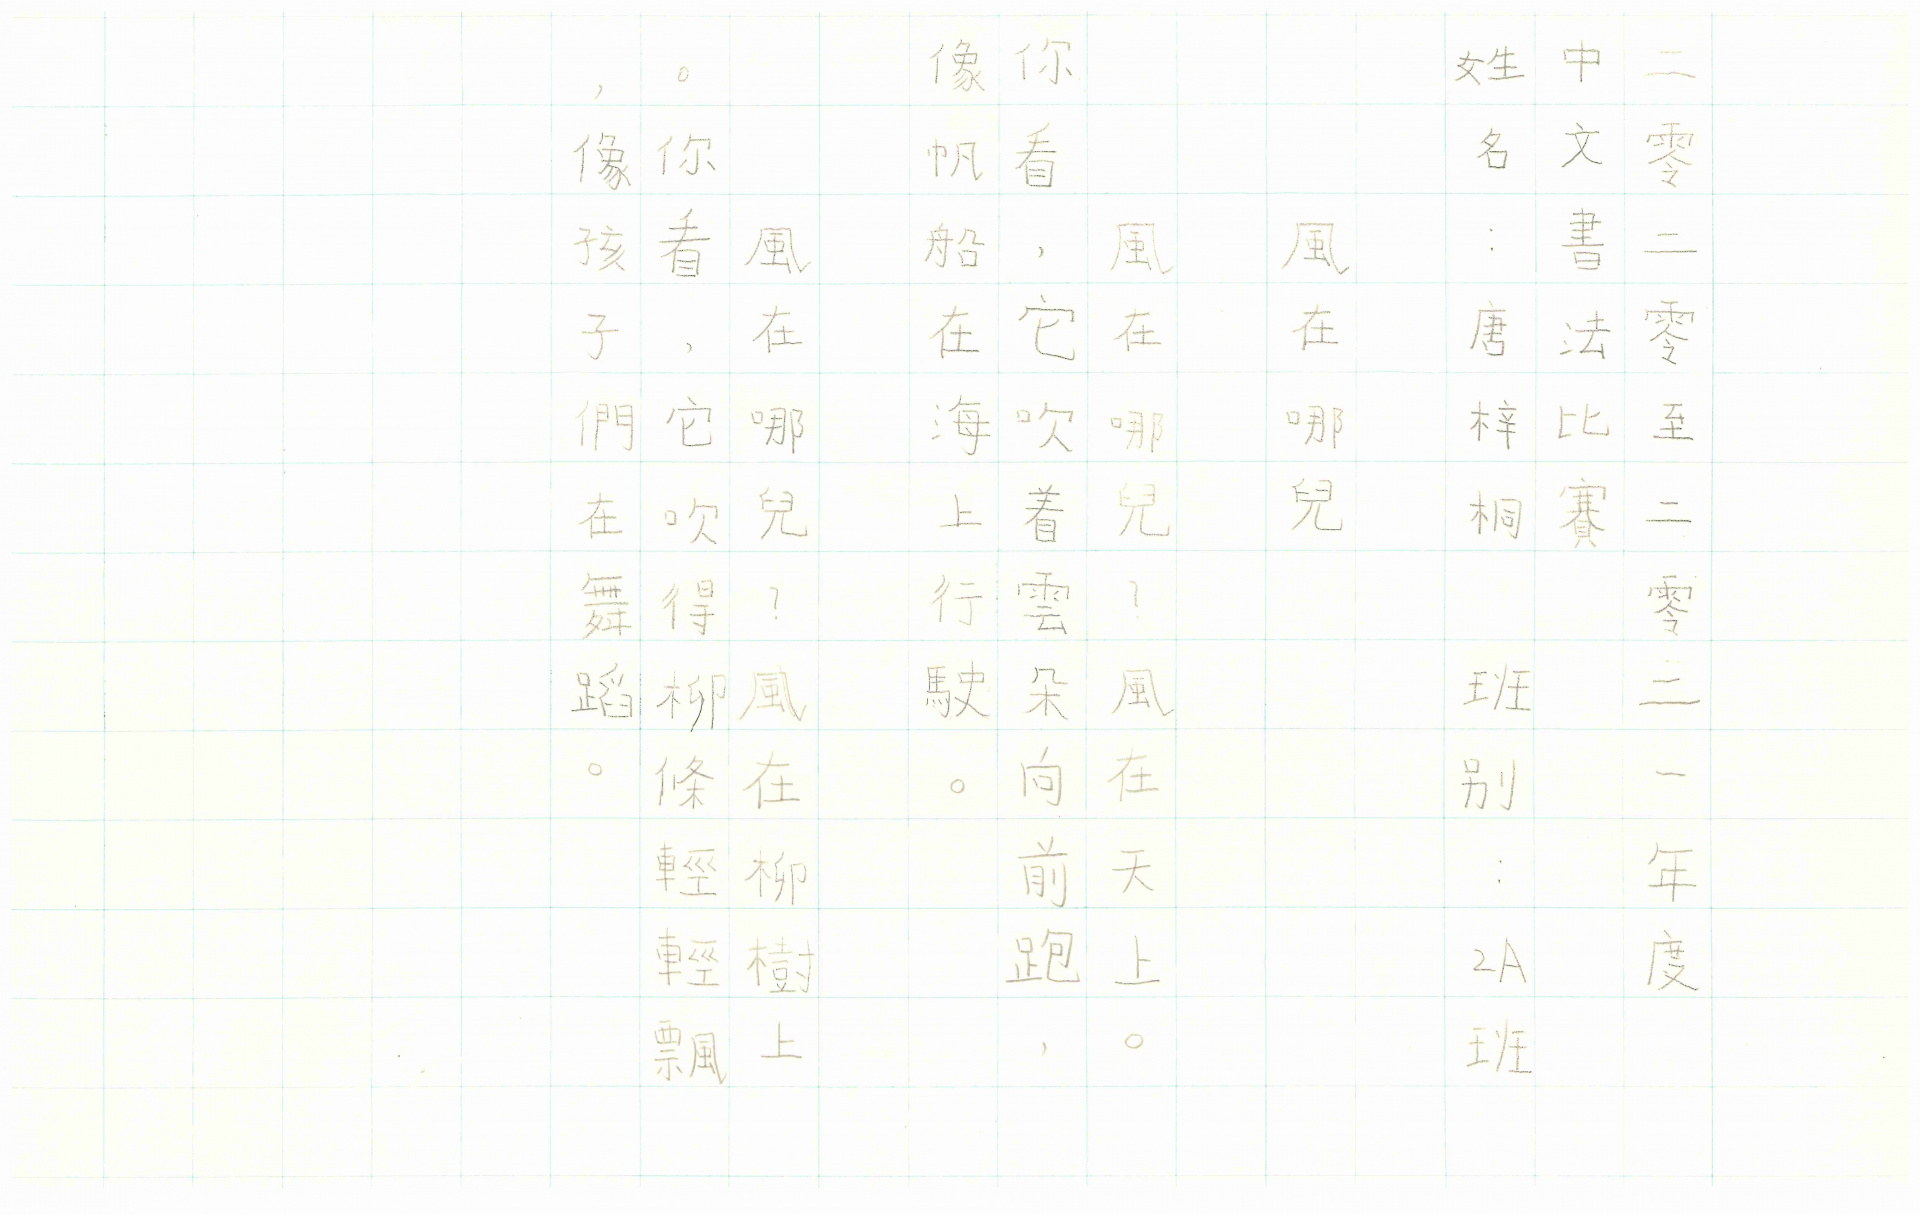 二零二零至二零二一年度
中文書法比賽
姓名：唐梓桐 班別：2A班
風在哪兒
風在哪兒？風在天上。
你看，它吹着雲朵向前跑，
像帆船在海上行駛。
風在哪兒？風在柳樹上
。你看，它吹得柳條輕輕飄
，像孩子們在舞蹈。